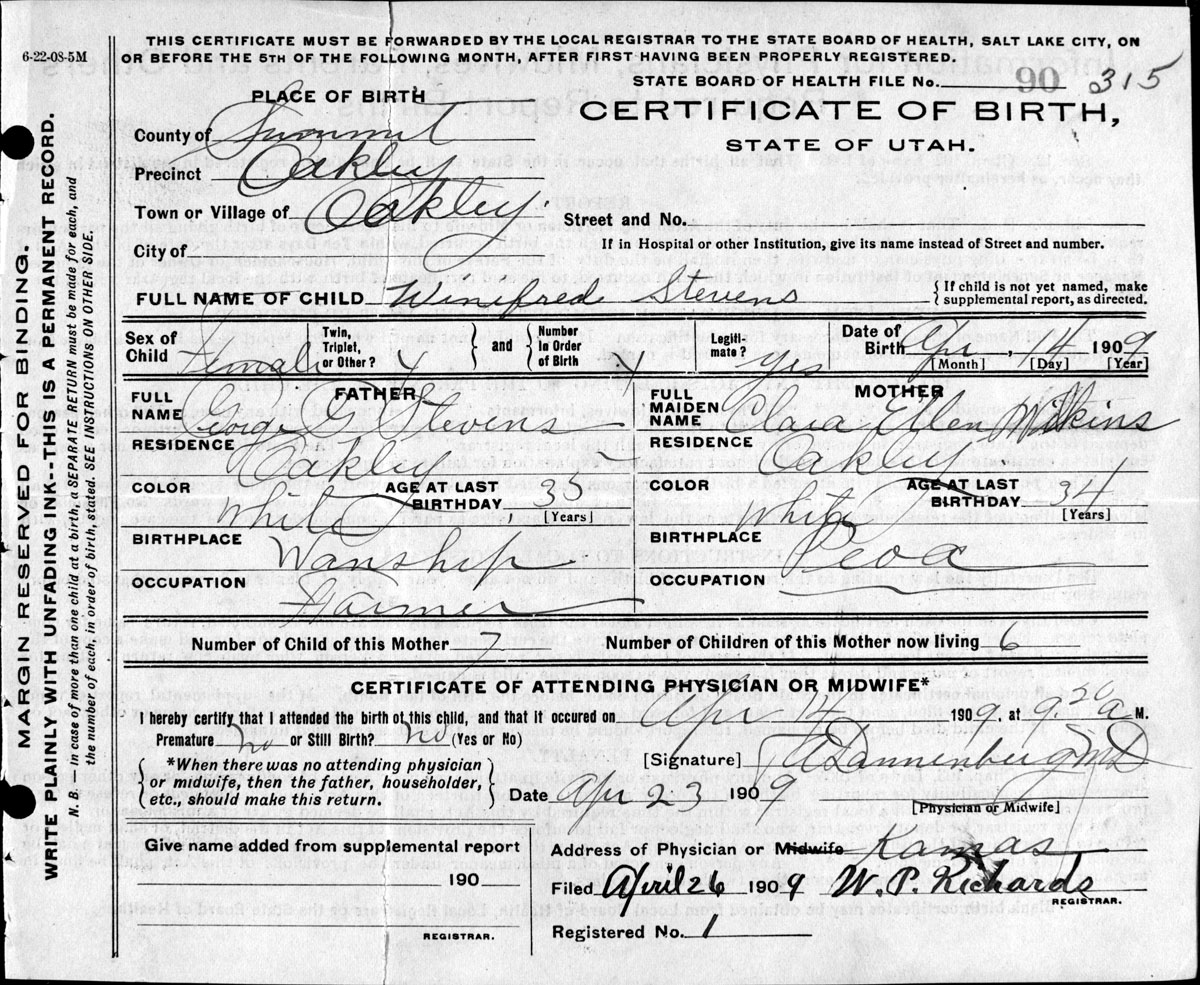 6-22-08-5M
THIS CERTIFICATE MUST BE FORWARDED BY THE LOCAL REGISTRAR TO THE STATE BOARD OF HEALTH, SALT LAKE CITY, ON
OR BEFORE THE 5TH OF THE FOLLOWING MONTH, AFTER FIRST HAVING BEEN PROPERLY REGISTERED.
STATE BOARD OF HEALTH FILE No. 90 315
PLACE OF BIRTH
CERTIFICATE OF BIRTH,
STATE OF UTAH.
County of Summit
Precinct Oakley
Town or Village of Oakley Street and No.
City of If in Hospital or other Institution, give its name instead of Street and number.
FULL NAME OF CHILD Winifrede Stevens { If child is not yet named, make
supplemental report, as directed.
Sex of Child Female Twin, Triplet, or Other? and Number in Order of Birth Legitimate? yes Date of Birth Apr 4 1909
[Month] [Day] [Year]
FATHER
FULL NAME George Stevens
RESIDENCE Oakley
COLOR White AGE AT LAST BIRTHDAY 35 [Years]
BIRTHPLACE Wanship
OCCUPATION Farmer
MOTHER
FULL MAIDEN NAME Clara Ellen Wilkins
RESIDENCE Oakley
COLOR White AGE AT LAST BIRTHDAY 34 [Years]
BIRTHPLACE Peoa
OCCUPATION
Number of Child of this Mother 7 Number of Children of this Mother now living 6
CERTIFICATE OF ATTENDING PHYSICIAN OR MIDWIFE*
I hereby certify that I attended the birth of this child, and that it occured on Apr 4 1909, at 9.50 a M.
Premature No or Still Birth? No (Yes or No)
*When there was no attending physician
or midwife, then the father, householder,
etc., should make this return.
[Signature] Dannenberg MD
Date Apr 23 1909 [Physician or Midwife]
Give name added from supplemental report
190
REGISTRAR.
Address of Physician or Midwife Kamas
Filed April 26 1909 W. P. Richards
REGISTRAR.
Registered No. 1
MARGIN RESERVED FOR BINDING.
WRITE PLAINLY WITH UNFADING INK--THIS IS A PERMANENT RECORD.
N. B. In case of more than one child at a birth, a SEPARATE RETURN must be made for each, and
the number of each, in order of birth, stated. SEE INSTRUCTIONS ON OTHER SIDE.